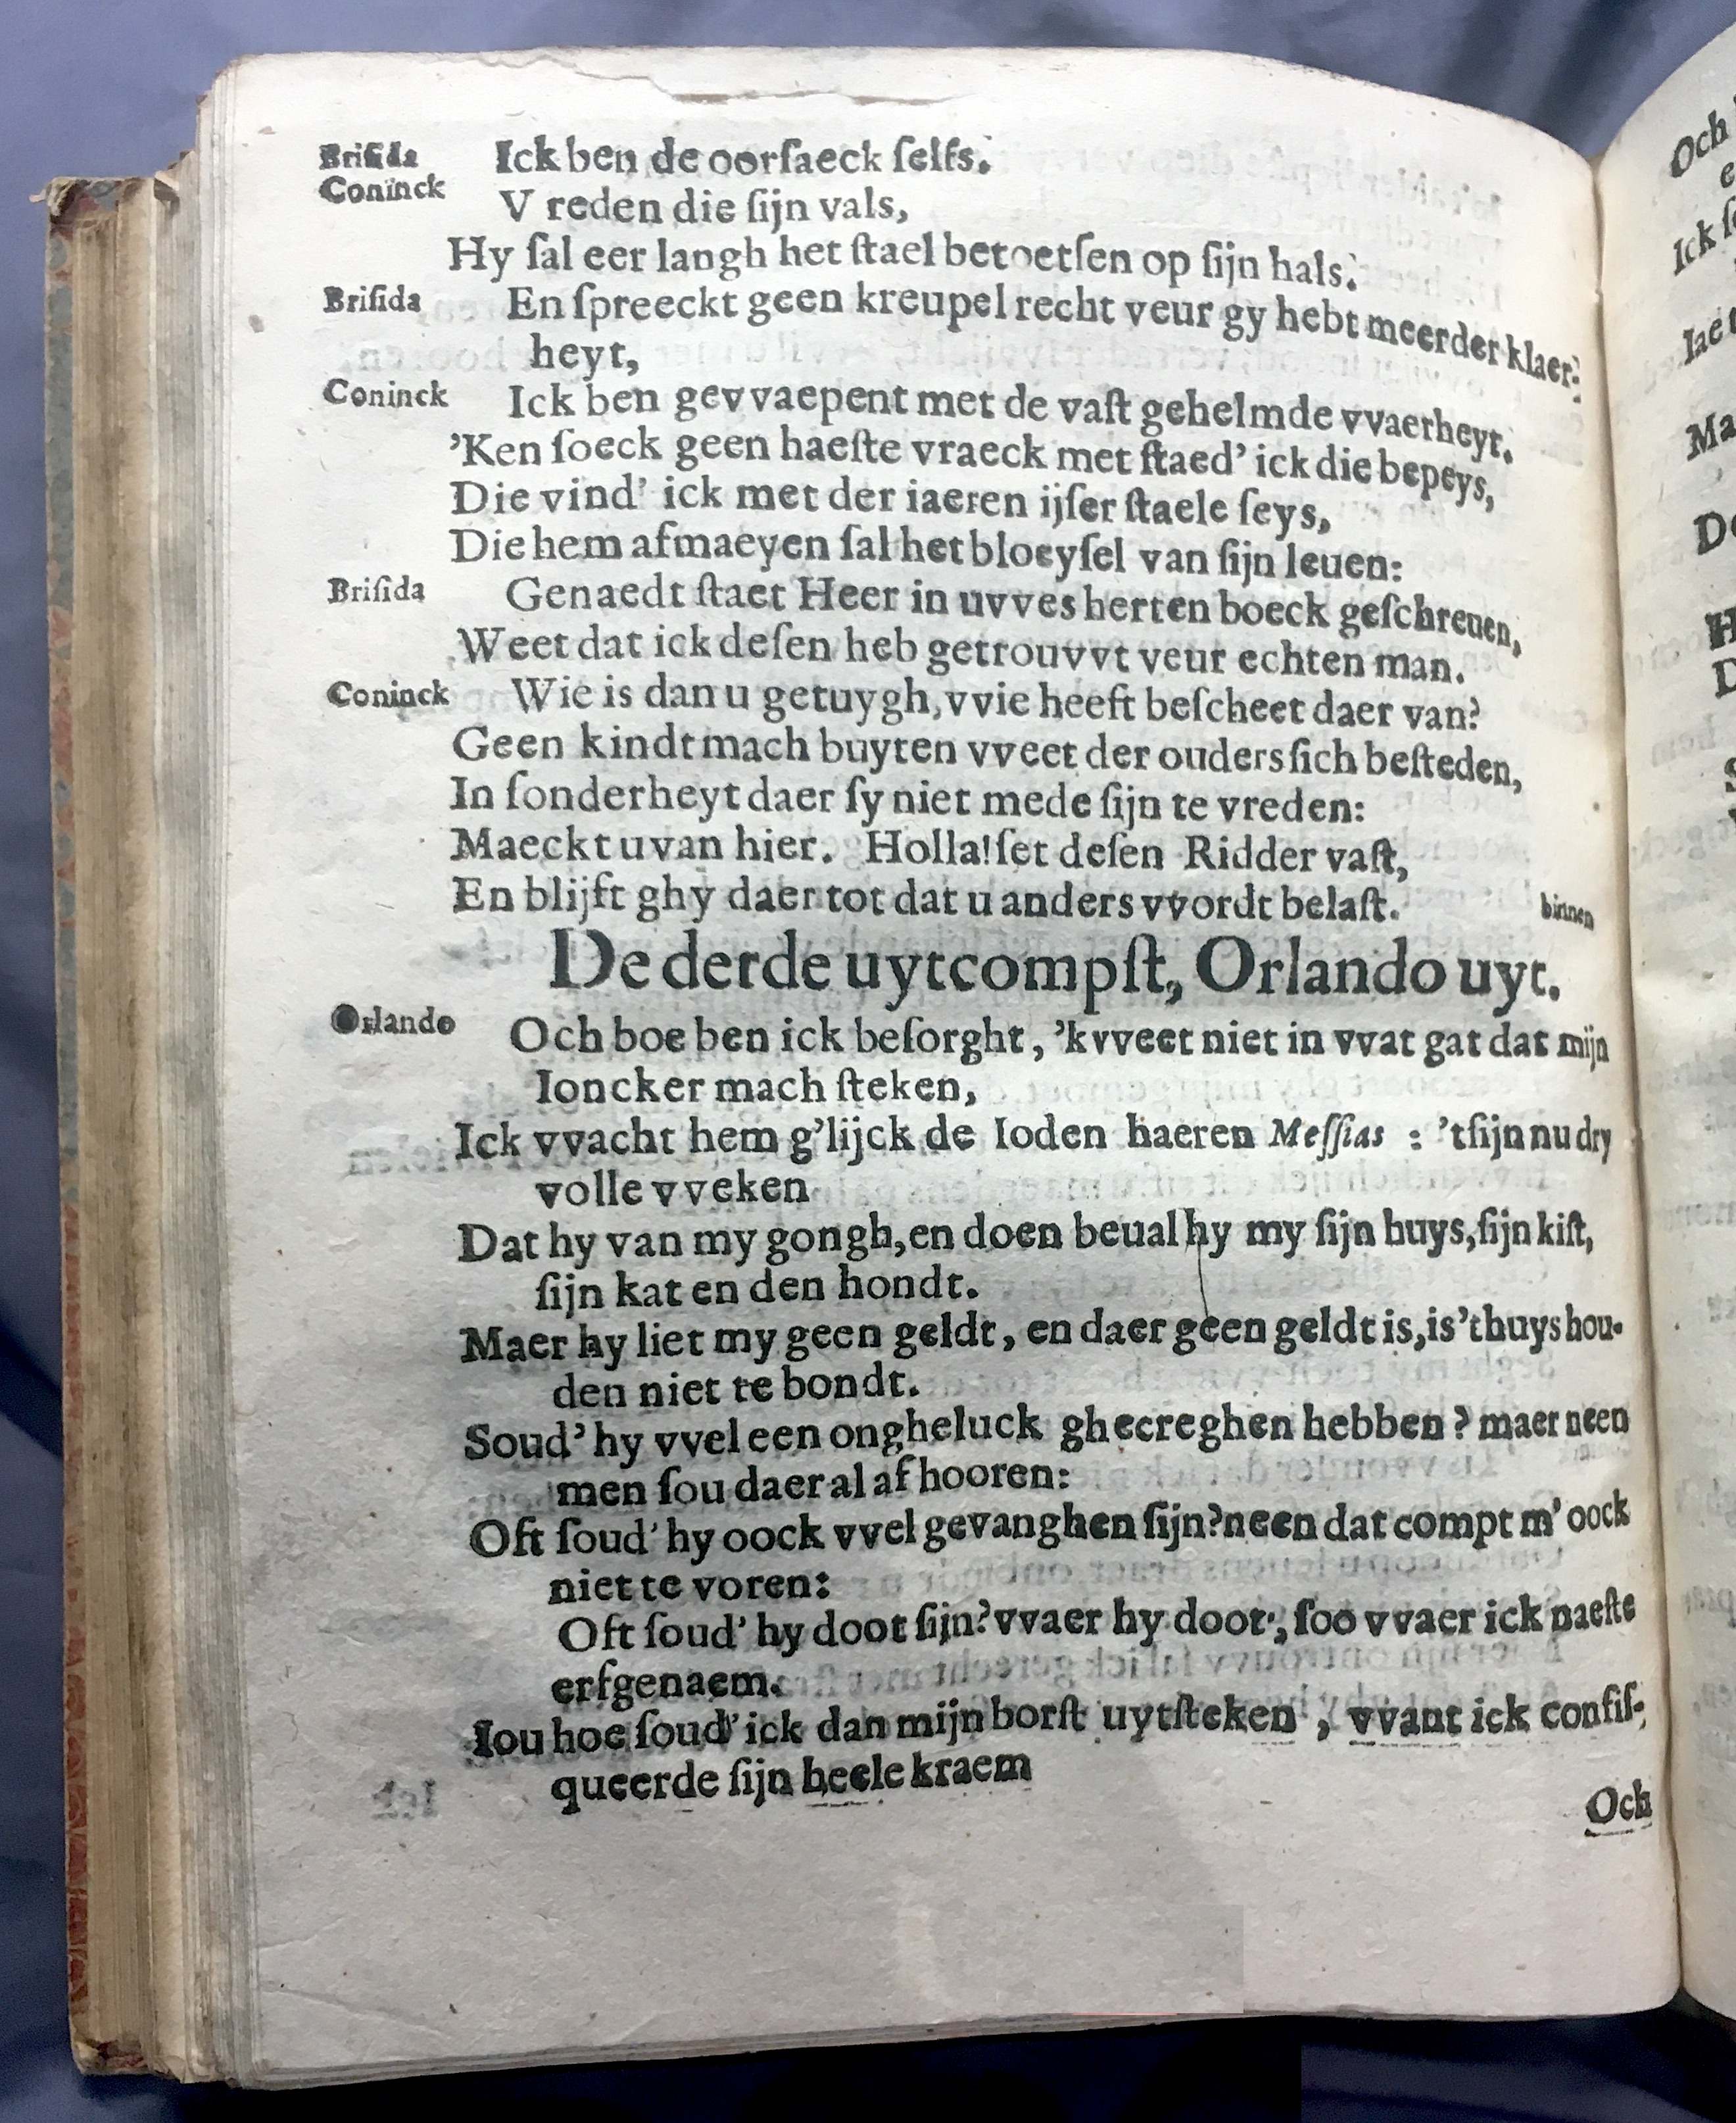 Briſida Ick ben de oorſaeck ſelfs.
Coninck V reden die ſijn vals,
Hy ſal eer langh het ſtael betoetſen op ſijn hals.
Briſida En ſpreeckt geen kreupel recht veur gy hebt meerder klaer-
heyt,
Coninck Ick ben gevvaepent met de vaſt gehelmde vvaerheyt.
'Ken ſoeck geen haeſte vraeck met ſtaed' ick die bepeys,
Die vind' ick met der iaeren ijſer ſtaele ſeys,
Die hem afmaeyen ſal het bloeyſel van ſijn leuen:
Briſida Genaedt ſtaet Heer in uvves herten boeck geſchreuen,
Weet dat ick deſen heb getrouvvt veur echten man.
Coninck Wie is dan u getuygh, vvie heeft beſcheet daer van?
Geen kindt mach buyten vveet der ouders ſich beſteden,
In ſonderheyt daer ſy niet mede ſijn te vreden:
Maeckt u van hier. Holla! ſet deſen Ridder vaſt,
En blijft ghy daer tot dat u anders vvordt belaſt. binnen
De derde uytcompſt, Orlando uyt.
Orlando Och hoe ben ick beſorght, 'k vveet niet in vvat gat dat mijn
Ioncker mach ſteken,
Ick vvacht hem g'lijck de Ioden haeren Meſſias : 't ſijn nu dry
volle vveken
Dat hy van my gongh, en doen beual hy my ſijn huys, ſijn kiſt,
ſijn kat en den hondt.
Maer hy liet my geen geldt, en daer geen geldt is, is 't huys hou-
den niet te bondt.
Soud' hy vvel een ongheluck ghecreghen hebben ? maer neen
men ſou daer al af hooren:
Oft ſoud' hy oock vvel gevanghen ſijn? neen dat compt m' oock
niet te voren:
Oft ſoud' hy doot ſijn? vvaer hy doot, ſoo vvaer ick naeſte
erfgenaem.
Iou hoe ſoud' ick dan mijn borſt uytſteken , vvant ick confiſ-
queerde ſijn heele kraem
Och